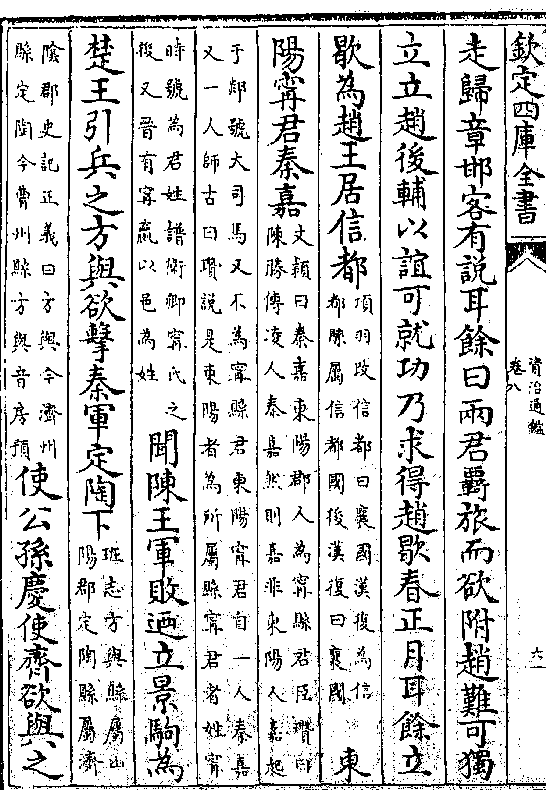 欽定四庫全書
資治通鑑
卷八
六
走歸章邯客有說耳餘曰兩君羇旅而欲附趙難可獨
立立趙後輔以誼可就功乃求得趙歇春正月耳餘立
歇為趙王居信都
項羽改信都曰襄國漢復為信
都縣屬信都國後漢復曰襄國
東
陽甯君秦嘉
文穎曰秦嘉東陽郡人為甯縣君臣瓚曰
陳勝傳凌人秦嘉然則嘉非東陽人嘉起
于郯號大司馬又不為甯縣君東陽甯君自一人秦嘉
又一人師古曰瓚說是東陽者為所屬縣甯君者姓甯
時號為君姓譜衛卿甯氏之
後又晉有甯嬴以邑為姓
聞陳王軍敗迺立景駒為
楚王引兵之方與欲擊秦軍定陶下
班志方與縣屬山
陽郡定陶縣屬濟
陰郡史記正義曰方與今濟州
縣定陶今曹州縣方與音房預
使公孫慶使齊欲與之